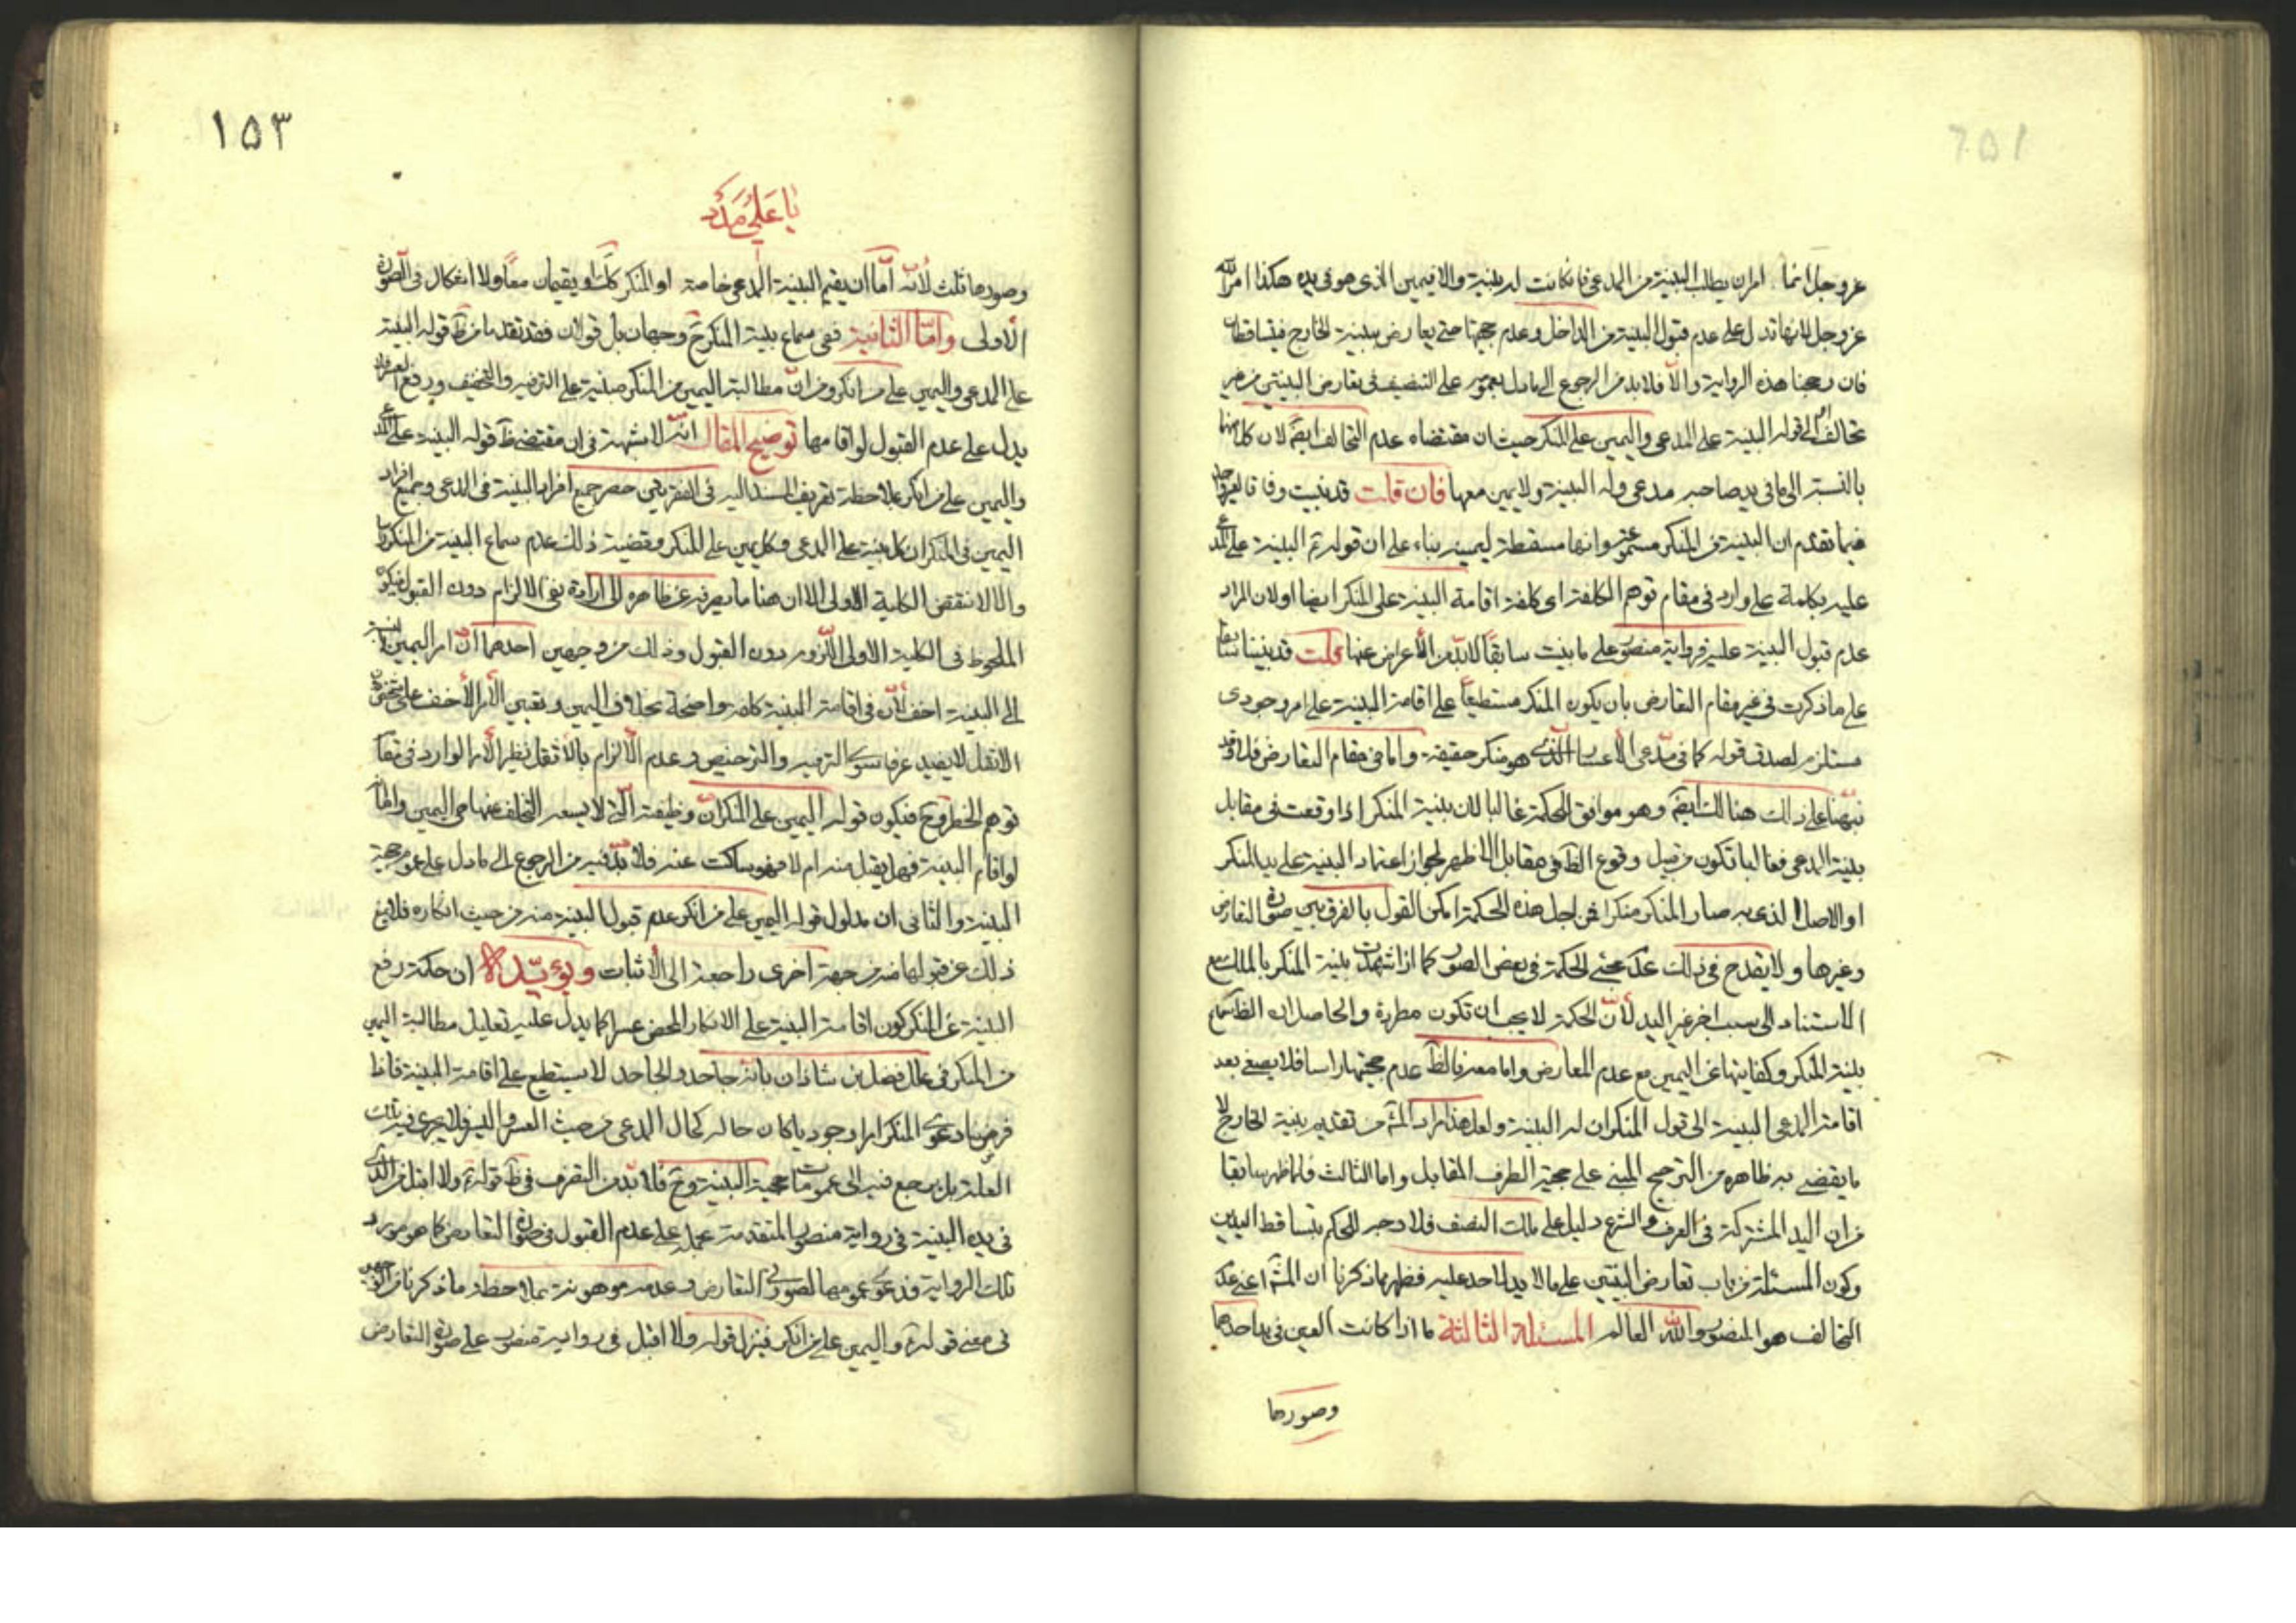 عز وجل انما امر ان يطلب البينة من المدعى فان كانت له بينة والا فيمين الذى هو فى يده هكذا امر الله
عز وجل لانها تدل على عدم قبول البينة من الداخل وعدم حجيتها حتى يعارض ببينة الخارج فيتساقطان
فان رجحنا هذه الرواية والا فلا بد من الرجوع الى ما دل بعمومه على التنصيف فى تعارض البينتين من غير
تحالف الى قوله البينة على المدعى واليمين على المنكر حيث ان مقتضاه عدم التحالف ايضا لان كلا منهما
بالنسبة الى ما فى يد صاحبه مدعى وله البينة ولا يمين معها فان قلت قد بنيت وفاقا
فيما تقدم ان البينة من المنكر مسموعة وانها مسقطة ليمينه بناء على ان قوله ع البينة على المدعى
عليه بكلمة على وارد فى مقام توهم الكلفة اى كلفة اقامة البينة على المنكر ايضا او لان المراد
عدم قبول البينة عليه فرواية منصور على ما بنيت سابقا لا بد من الاعراض عنها قلت قد بنينا سابقا
على ما ذكرت فى غير مقام التعارض بان يكون المنكر مستطيعا على اقامة البينة على امر وجودى
مستلزم لصدق قوله كما فى مدعى الاعسار الذى هو منكر حقيقة واما فى مقام التعارض فلا وقد
نبهنا على ذلك هنالك ايضا وهو موافق للحكمة غالبا لان بينة المنكر اذا وقعت فى مقابل
بينة المدعى فغالبا تكون من قبيل وقوع الظ فى مقابل الاظهر لجواز اعتماد البينة على يد المنكر
او الاصل الذى به صار المنكر منكرا فمن اجل هذه الحكمة امكن القول بالفرق بين صورة التعارض
وغيرها ولا يقدح فى ذلك عدم مجئ الحكمة فى بعض الصور كما اذا شهدت بينة المنكر بالملك مع
الاستناد الى سبب اخر غير اليد لان الحكمة لا يجب ان تكون مطردة والحاصل ان الظ سماع
بينة المنكر وكفايتها عن اليمين مع عدم المعارض واما معه فالظ عدم حجيتها راسا فلا يصغى بعد
اقامة المدعى البينة الى قول المنكر ان له البينة ولعل هذا مراد المش من تقديم بينة الخارج لا
ما يقضى به ظاهره من الترجيح المبنى على حجية الطرف المقابل واما الثالث فلما ظهر سابقا
من ان اليد المشتركة فى العرف والشرع دليل على ملك النصف فلا وجه للحكم بتساقط اليدين
وكون المسئلة من باب تعارض البينتين على ما لا يد لاحد عليه فظهر مما ذكرنا ان المش اعنى عدم
التحالف هو المنصور والله العالم المسئلة الثالثة ما اذا كانت العين فى يد احدهما
وصورها
١٥٣
يا على مدد
وصورها ثلث لانه اما ان يقيم البينة المدعى خاصة او المنكر كك او يقيمان معا ولا اشكال فى الصورة
الاولى واما الثانية ففى سماع بينة المنكر ح وجهان بل قولان فقد تقدما من ظ قوله البينة
على المدعى واليمين على من انكر ومن ان مطالبة اليمين من المنكر مبنية على الترفيه والتخفيف ورفع العسر فلا
يدل على عدم القبول لو اقامها توضيح المقال انه لا شبهة فى ان مقتضى ظ قوله البينة على المدعى
واليمين على من انكر بملاحظة تعريف المسند اليه فى الفقرتين حصر جميع افراد البينة فى المدعى وجميع افراد
اليمين فى المنكر اى كل بينة على المدعى وكل يمين على المنكر وقضية ذلك عدم سماع البينة من المنكر
والا لانتقض الكلية الاولى الا ان هنا ما يصرفه عن ظاهره الى ارادة نفى الالزام دون القبول فيكون
الملحوظ فى الكلية الاولى اللزوم دون القبول وذلك من وجهين احدهما ان امر اليمين بالنسبة
الى البينة اخف لان فى اقامة البينة كلفة واضحة بخلاف اليمين وتعيين الامر الاخف على شخص دون
الاثقل لا يفيد عرفا سوى الترفيه والترخيص وعدم الالزام بالاثقل نظير الامر الوارد فى مقام
توهم الخطر وح فيكون قوله اليمين على المنكر ان وظيفته التى لا يسعه التخلف عنها هى اليمين واما
لو اقام البينة فهل يقبل منه ام لا فهو ساكت عنه فلا بد فيه من الرجوع الى ما دل على عموم حجية
البينة والثانى ان مدلول قوله اليمين على من انكر عدم قبول البينة منه من حيث انكاره فلا يمنع
ذلك عن قبولها منه من جهة اخرى راجعة الى الاثبات ويؤيده ان حكمة رفع
البينة عن المنكر كون اقامة البينة على الانكار المحض عسرا كما يدل عليه تعليل مطالبة اليمين
من المنكر فى علل فضل بن شاذان بانه جاحد والجاحد لا يستطيع على اقامة البينة فاذا
فرضنا دعوى المنكر امرا وجوديا كان حاله كحال المدعى من حيث العسر واليسر فلا يجرى فيه تلك
العلة بل يرجع فيه الى عمومات حجية البينة وح فلا بد من التصرف فى ظ قوله ع ولا اقبل من الذى
فى يده البينة فى رواية منصور المتقدمة بحمله على عدم القبول فى صورة التعارض كما هو مورد
تلك الرواية فدعوى عمومها لصورتى التعارض وعدمه موهونة بملاحظة ما ذكرنا من الوجهين
فى معنى قوله ع واليمين على من انكر فينزل قوله ولا اقبل فى رواية منصور على صورة التعارض